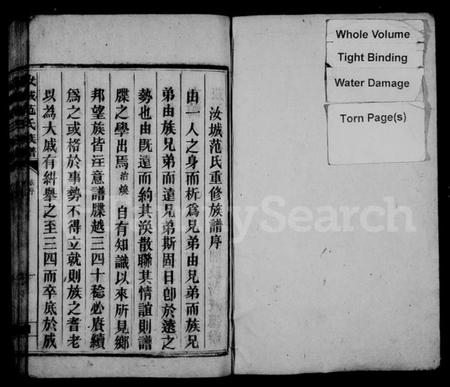 汝城范氏重修族譜序
由一人之身而析為兄弟由兄弟而族兄
弟由族兄弟而遠兄弟斯固日卽於遠之
勢也由旣遠而約其渙散聯其情誼則譜
牒之學出焉治燒自有知識以來所見鄉
邦望族皆注意譜牒越三四十稔必賡續
為之或格於事勢不得立就則族之耆老
以為大戚有糾舉之至三四而卒底於成
汝城范氏族譜
Whole Volume
Tight Binding
Water Damage
Torn Page(s)
FamilySearch